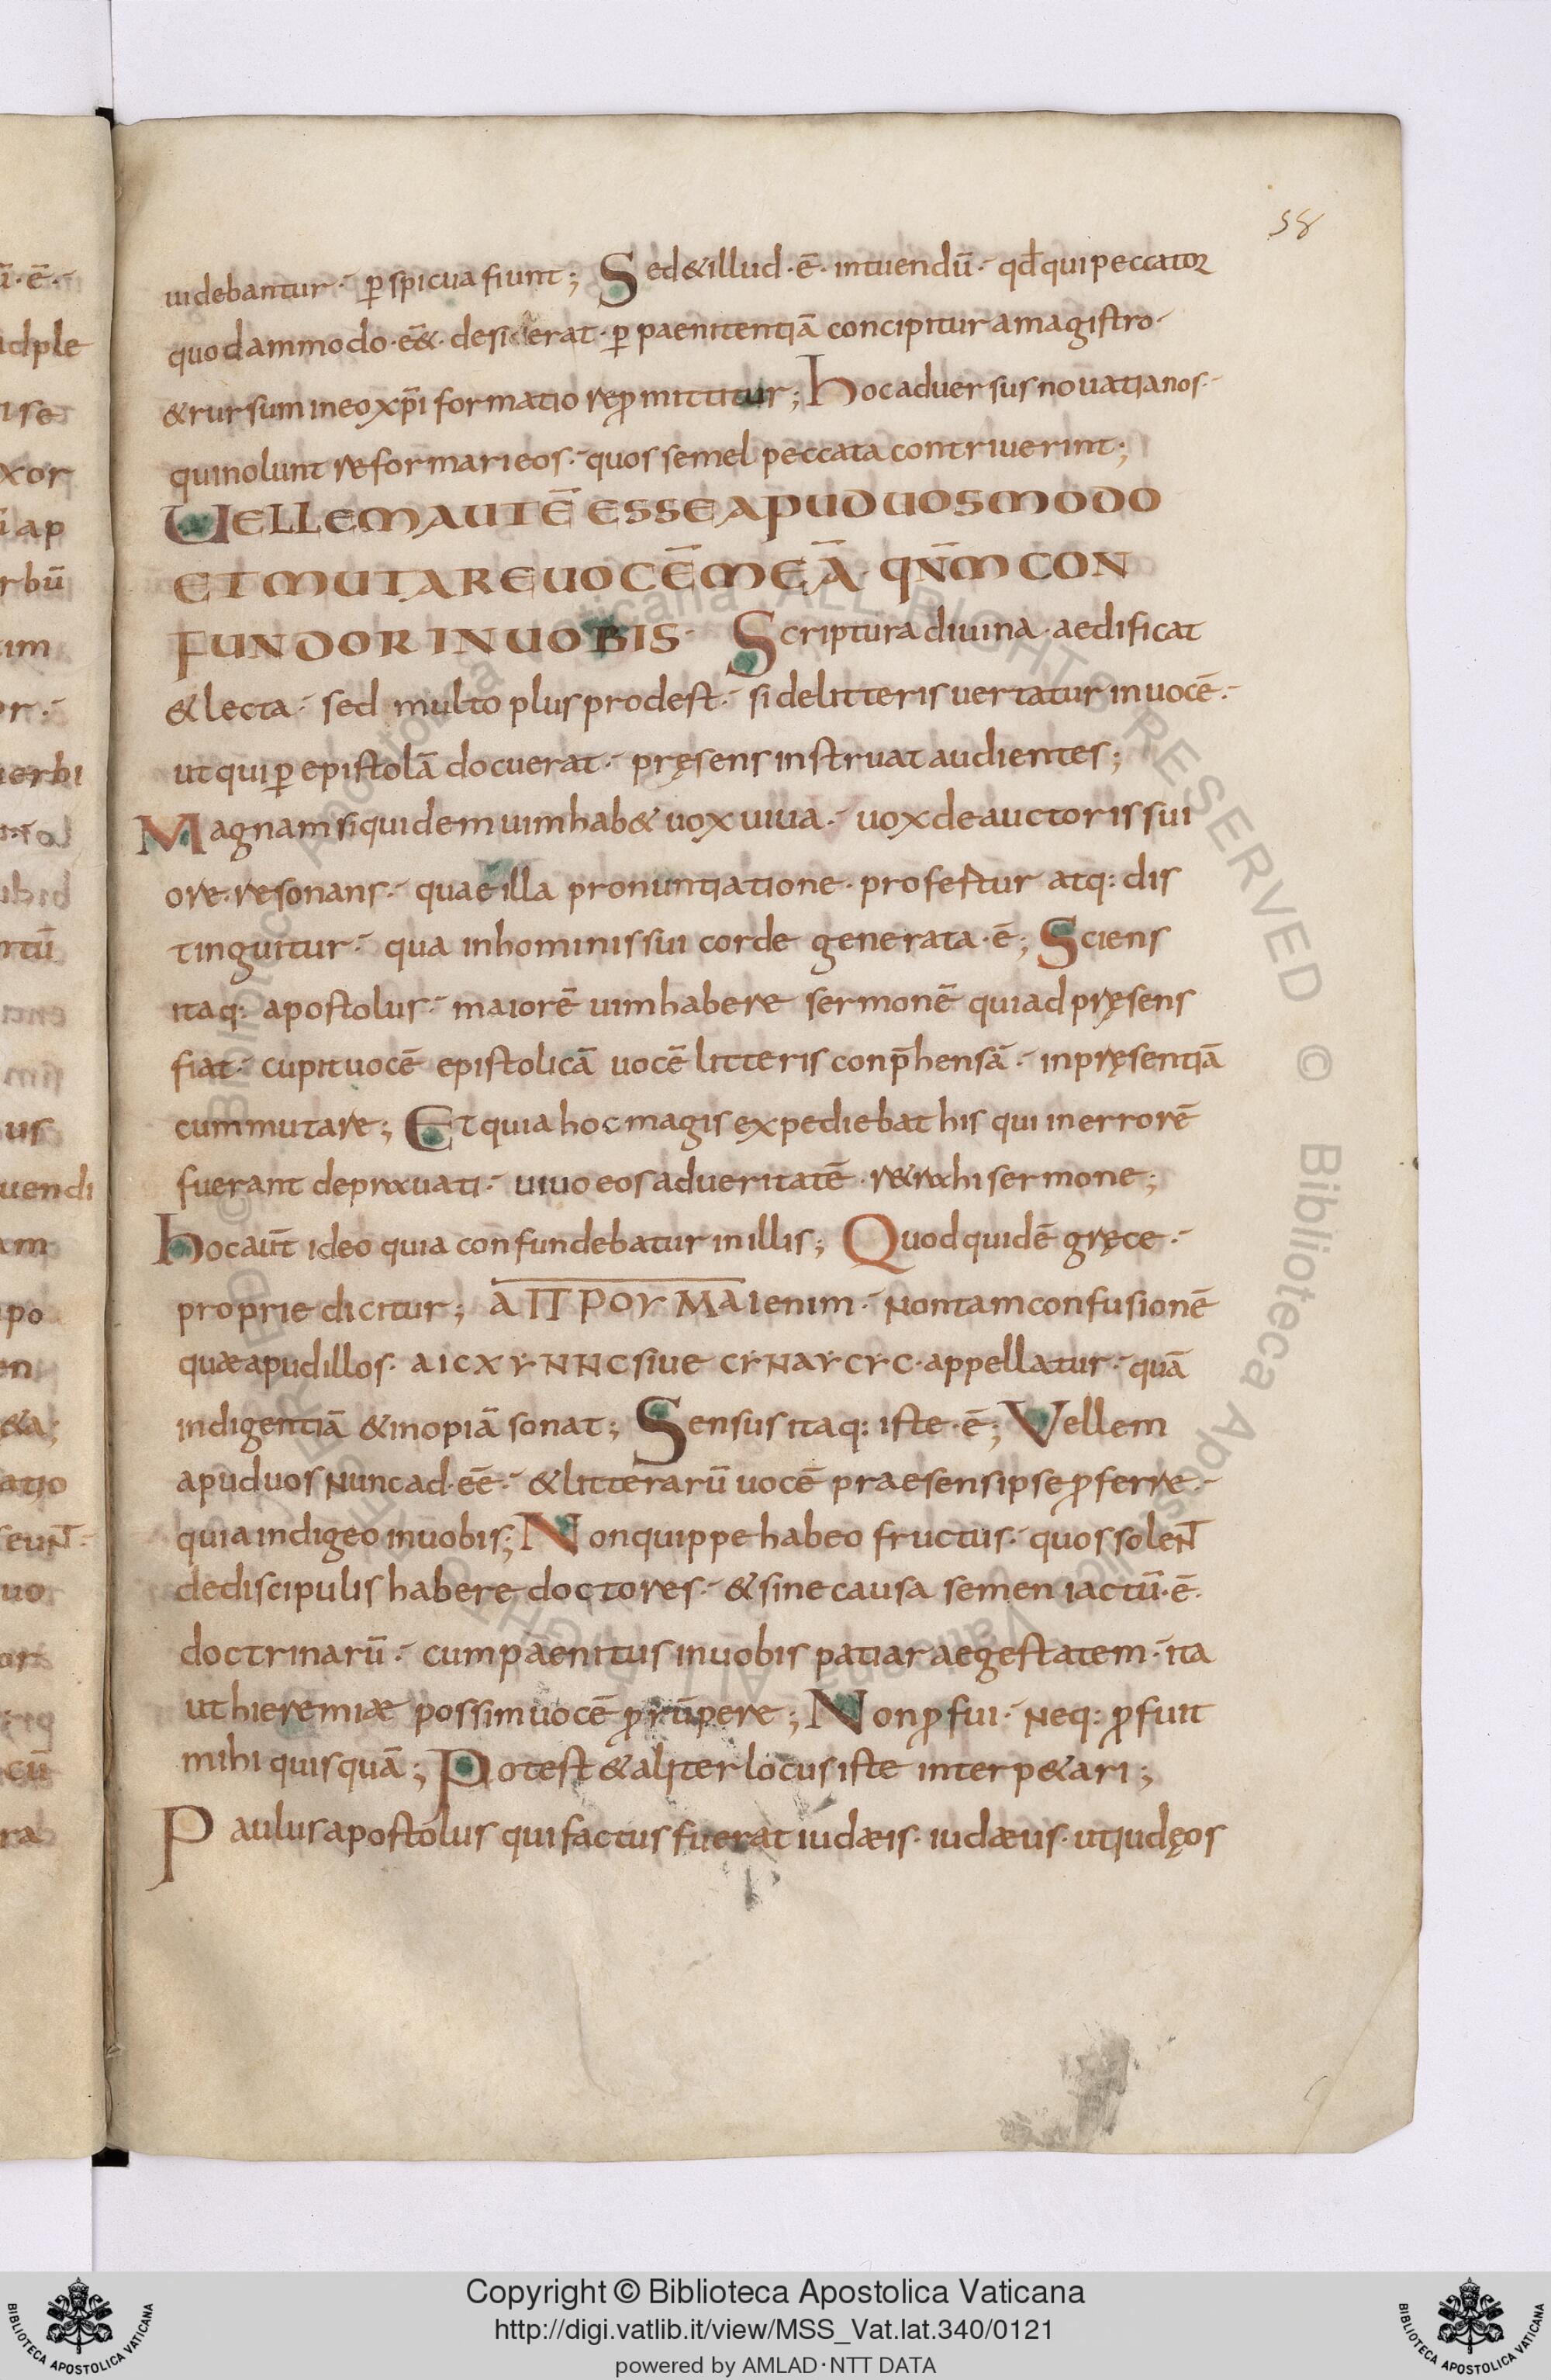 58
uidebantur·- ꝑspicua fiunt; Sed&illud·ē·intuendū·- qđ qui peccator
quodammodo·eē&·desierat·ꝑ paenitentiā concipitur a magistro·
&rursum in eo xp̄i formatio repmittitur; hoc aduersus nouatianos·-
qui nolunt reformari eos·- quos semel peccata contriuerint;
UELLEM AUTĒ ESSE APUD UOS MODO
ET MUTARE UOCĒ MEĀ· QNM̄ CON
FUNDOR IN UOBIS· Scriptura diuina·aedificat
&lecta·- sed multo plus prodest·- si de litteris uertatur in uocē·-
ut qui ꝑ epistolā docuerat·- pręsens instruat audientes;
Magnam siquidem uim hab& uox uiua·- uox de auctoris sui
ore·resonans·- quae illa pronuntiatione·profertur atq: dis
tinguitur·- qua in hominis sui corde generata·ē; Sciens
itaq: apostolus·- maiorē uim habere sermonē qui ad pręsens
fiat·- cupit uocē epistolicā uocē litteris conp̄hensā·- in pręsentiā
cummutare; Et quia hoc magis expediebat his qui in errorē
fuerant deprauati·- uiuo eos ad ueritatē·r&rahi sermone;
hoc aut̄ ideo quia confundebatur in illis; Quod quidē gręce·-
proprie dicitur; AΠΠPOYMAI enim·- Non tam confusionē
quæ apud illos·AICXYNNC siue CYNAYCYC·appellatur·- quā
indigentiā &inopiā sonat; Sensus itaq: iste·ē; Vellem
apud uos nunc ad·eē·- &litterarū uocē praesens ipse ꝓferre·-
quia indigeo in uobis; Non quippe habeo fructus·- quos solent
de discipulis habere doctores·- &sine causa semen iactū·ē·
doctrinarū·- cum paenitus in uobis patiar aegestatem·- ita
ut hieremiæ possim uocē ꝓrūpere; Non ꝓfui·- Neq: ꝓfuit
mihi quisquā; Potest &aliter locus iste interp&ari;
Paulus apostolus qui factus fuerat iudæis·iudæus·ut iudęos
Copyright © Biblioteca Apostolica Vaticana
http://digi.vatlib.it/view/MSS_Vat.lat.340/0121
powered by AMLAD·NTT DATA
BIBLIOTECA APOSTOLICA VATICANA
BIBLIOTECA APOSTOLICA VATICANA